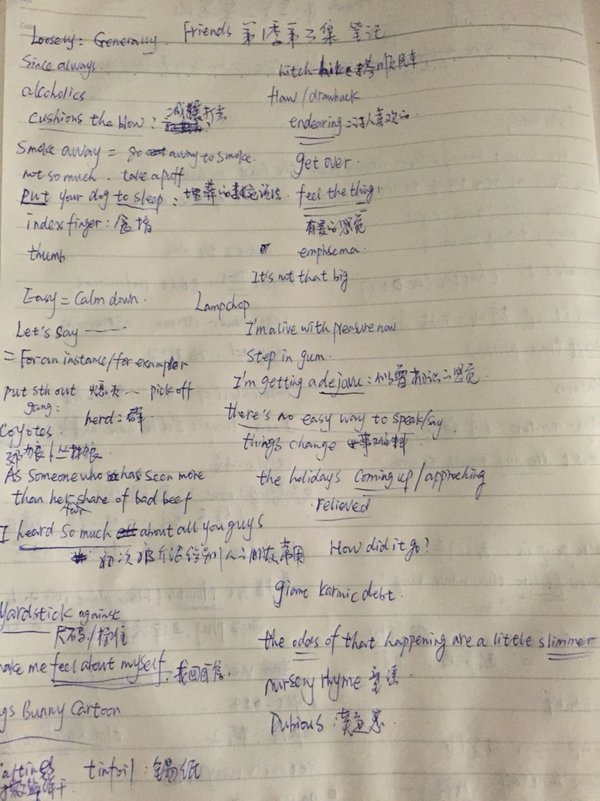 Friends 第1季第三集 笔记
Loosely: Generally
Since always.
alcoholics
cushions the blow: 减缓打击
Smoke away = go away to smoke.
not so much. take a puff
Put your dog to sleep:
index finger: 食指
thumb
Easy = Calm down.
Let's say ——
= For an instance/for example
put sth out 熄灭 — pick off
gang:
herd: 群
Coyotes.
郊狼/丛林狼
As someone who has seen more
than her fair share of bad beef
I heard so much about all you guys
初次被介绍给别人的朋友常用
Yardstick against
尺码/标准
make me feel about myself.
gs Bunny Cartoon
tinfoil: 锡纸
hitch
flaw/drawback
endearing: 讨人喜欢的
get over.
feel the thing:
有爱的感觉
or emphsema.
It's not that big
Lampchop
I'm alive with pleasure now
Step in gum.
I'm getting a dejavu: 似曾相识的感觉
there's no easy way to speak/say
things change
the holidays coming up/approching
relieved
How did it go?
giant karmic debt.
the odds of that happening are a little slimmer
nursery rhyme 童谣
Dubious: